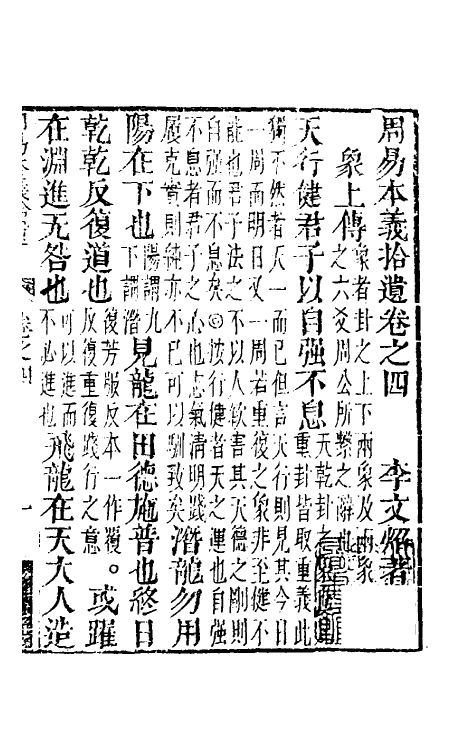 周易本義拾遺卷之四　李文炤著
象上傳象者卦之上下兩象及兩象之六爻周公所繫之辭也
天行健君子以自强不息天乾卦之象重卦皆取重義此
獨不然者天一而已但言天行則見其今日
一周而明日又一周若重復之象非至健不
能也君子法之不以人欲害其天德之剛則
自强而不息矣◎按行健者天之運也自强
不息者君子之心也志氣清明踐
履克實則純亦不已可以馴致矣潛龍勿用
陽在下也陽謂九下謂潛見龍在田德施普也終日
乾乾反復道也復芳服反本一作覆。反復重復踐行之意或躍
在淵進无咎也可以進而不必進也飛龍在天大人造